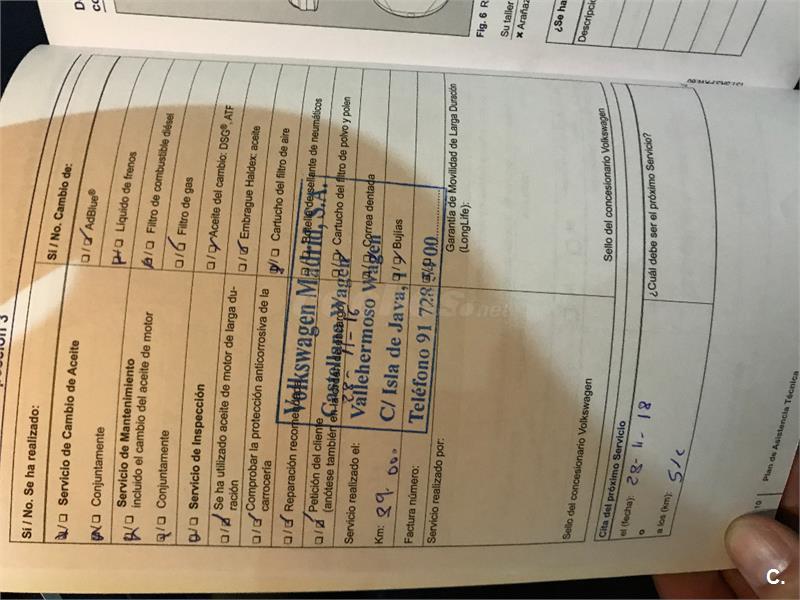 Sección 3
Sí / No. Se ha realizado:
Servicio de Cambio de Aceite
Conjuntamente
Servicio de Mantenimiento
incluido el cambio del aceite de motor
Conjuntamente
Servicio de Inspección
Se ha utilizado aceite de motor de larga du-
ración
Comprobar la protección anticorrosiva de la
carrocería
Reparación
Petición del cliente
(anótese también en
Servicio realizado el:
28-11-16
Km: 39.000
Factura número:
Servicio realizado por:
Sello del concesionario Volkswagen
Sí / No. Cambio de:
AdBlue®
Líquido de frenos
Filtro de combustible diésel
Filtro de gas
Aceite del cambio: DSG®, ATF
Embrague Haldex: aceite
Cartucho del filtro de aire
Botella de sellante de neumáticos
Cartucho del filtro de polvo y polen
Correa dentada
Bujías
Garantía de Movilidad de Larga Duración
(LongLife):
Sello del concesionario Volkswagen
Volkswagen Madrid, S.A.
Castellana Wagen
Vallehermoso Wagen
C/ Isla de Java,
Teléfono 91 728 54 00
Cita del próximo Servicio
el (fecha): 28-11-18
o
a los (km): S/c
¿Cuál debe ser el próximo Servicio?
10 | Plan de Asistencia Técnica
Fig. 6
Su taller
× Araña
¿Se ha
Descripci
C.